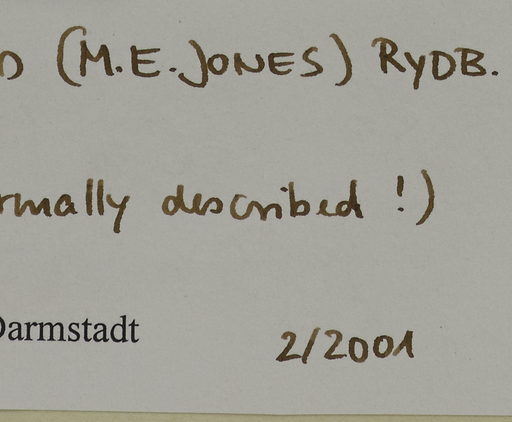 (M.E.JONES) RYDB.
described !)
Darmstadt 2/2001